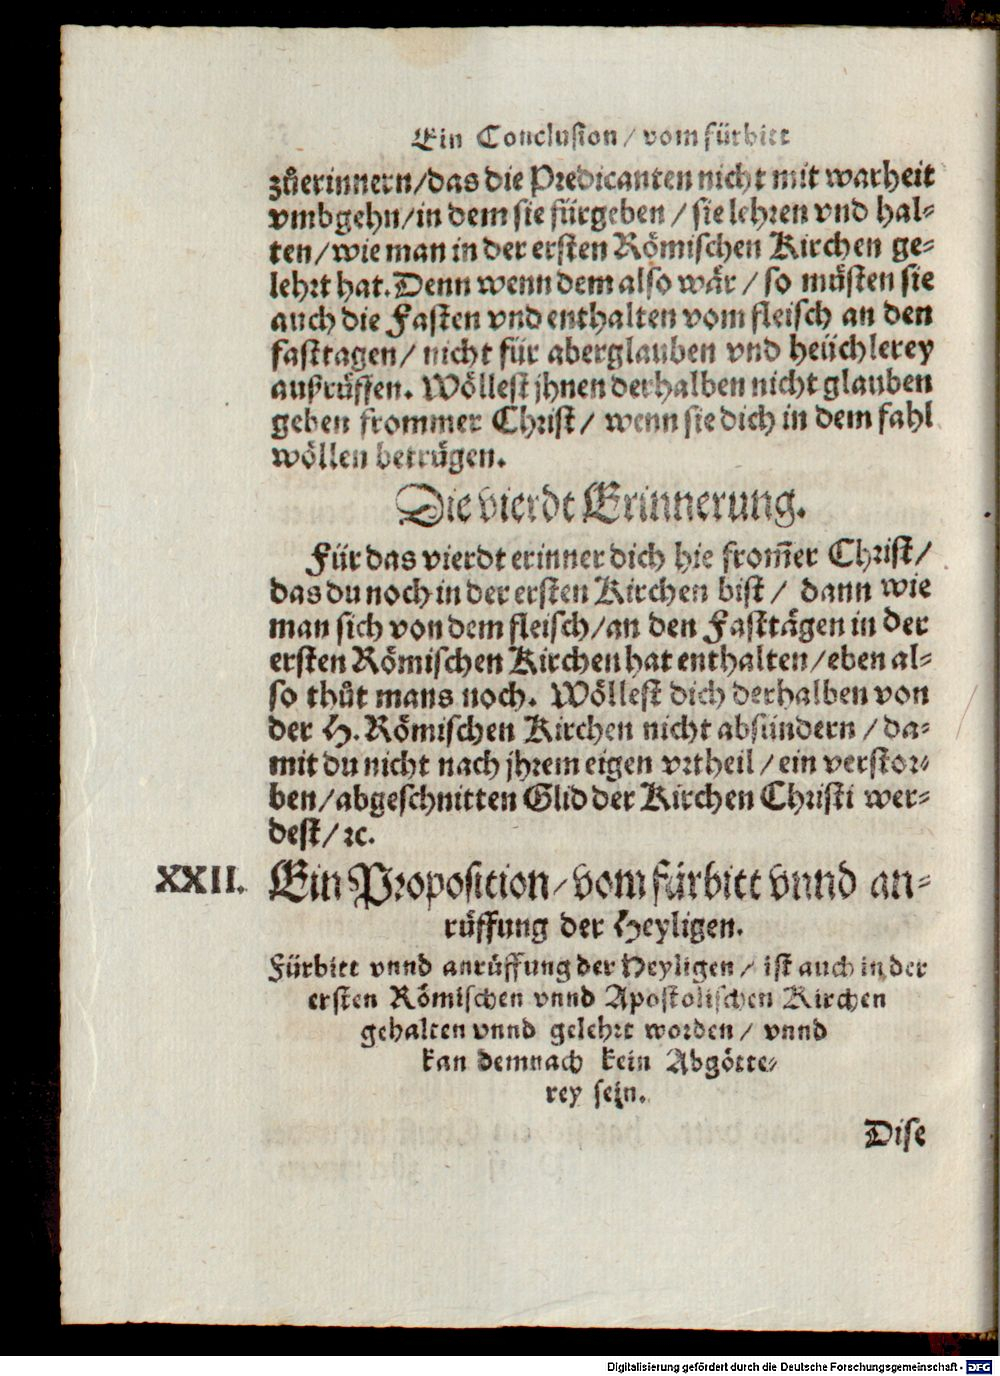 Ein Conclusion / vom fürbitt
zůerinnern/das die Predicanten nicht mit warheit
vmbgehn/in dem sie fürgeben / sie lehren vnd hal-
ten/wie man in der ersten Römischen Kirchen ge-
lehrt hat. Denn wenn dem also wär / so müsten sie
auch die Fasten vnd enthalten vom fleisch an den
fasttagen/ nicht für aberglauben vnd heüchlerey
außrüffen. Wöllest jhnen derhalben nicht glauben
geben frommer Christ/ wenn sie dich in dem fahl
wöllen betrügen.
Die vierdt Erinnerung.
Für das vierdt erinner dich hie from̃er Christ/
das du noch in der ersten Kirchen bist / dann wie
man sich von dem fleisch/an den Fasttägen in der
ersten Römischen Kirchen hat enthalten/eben al-
so thůt mans noch. Wöllest dich derhalben von
der H. Römischen Kirchen nicht absündern / da-
mit du nicht nach jhrem eigen vrtheil / ein verstor-
ben/abgeschnitten Glid der Kirchen Christi wer-
dest/ꝛc.
XXII. Ein Proposition/ vom fürbitt vnnd an-
rüffung der Heyligen.
Fürbitt vnnd anrüffung der Heyligen / ist auch in der
ersten Römischen vnnd Apostolischen Kirchen
gehalten vnnd gelehrt worden / vnnd
kan demnach kein Abgötte-
rey sein.
Dise
Digitalisierung gefördert durch die Deutsche Forschungsgemeinschaft - DFG